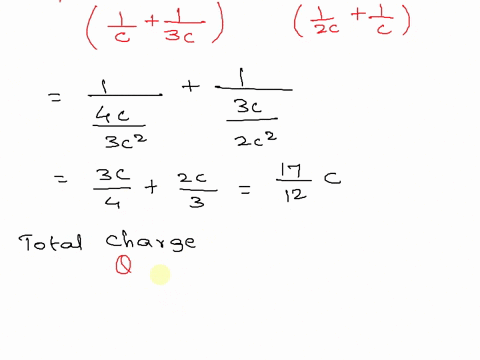 (1/c + 1/3c) (1/2c + 1/c)
= 1/(4c/3c²) + 1/(3c/2c²)
= 3c/4 + 2c/3 = 17/12 c
Total charge
Q